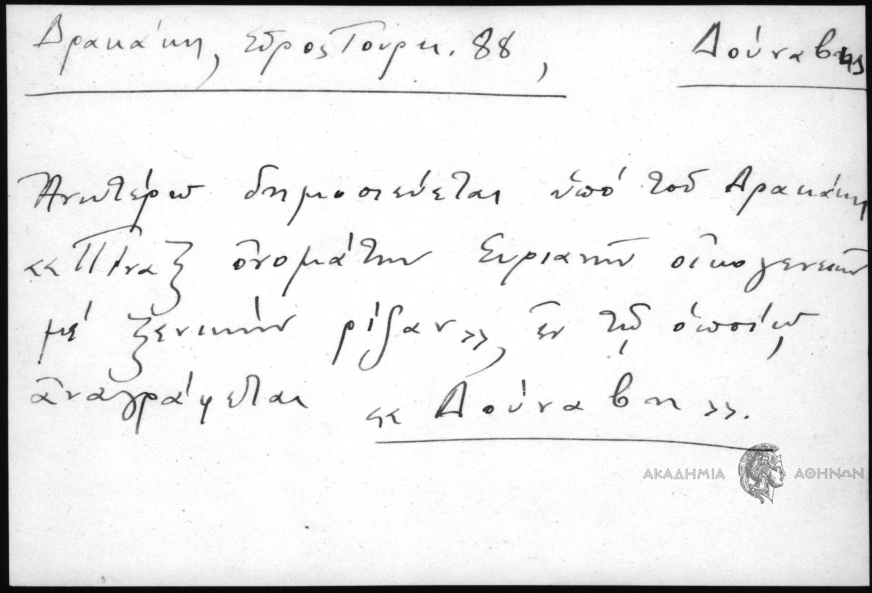 Δρακάκη, Σῦρος Τουρκ. 88, Δούναβης
Ἀνωτέρω δημοσιεύεται ὑπό τοῦ Δρακάκη
«Πίναξ ὀνομάτων Συριανῶν οἰκογενειῶν
μέ ξενικήν ρίζαν», ἐν τῷ ὁποίῳ
ἀναγράφεται «Δούναβη».
ΑΚΑΔΗΜΙΑ ΑΘΗΝΩΝ